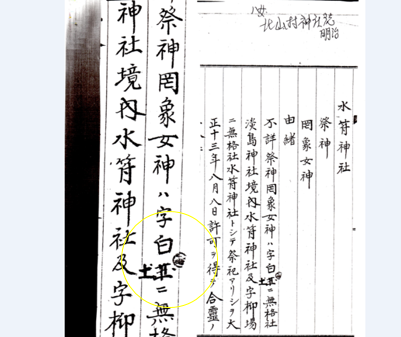 北山村神社誌
明治
水 神社
祭神
罔象女神
由緒
不詳祭神罔象女神ハ字白 ニ無格社
淡島神社境内水 神社及字柳場
ニ無格社水 神社トシテ祭祀アリシヲ大
正十三年八月八日許可ヲ得テ合霊ノ
祭神罔象女神ハ字白 ニ無格
神社境内水 神社及字柳